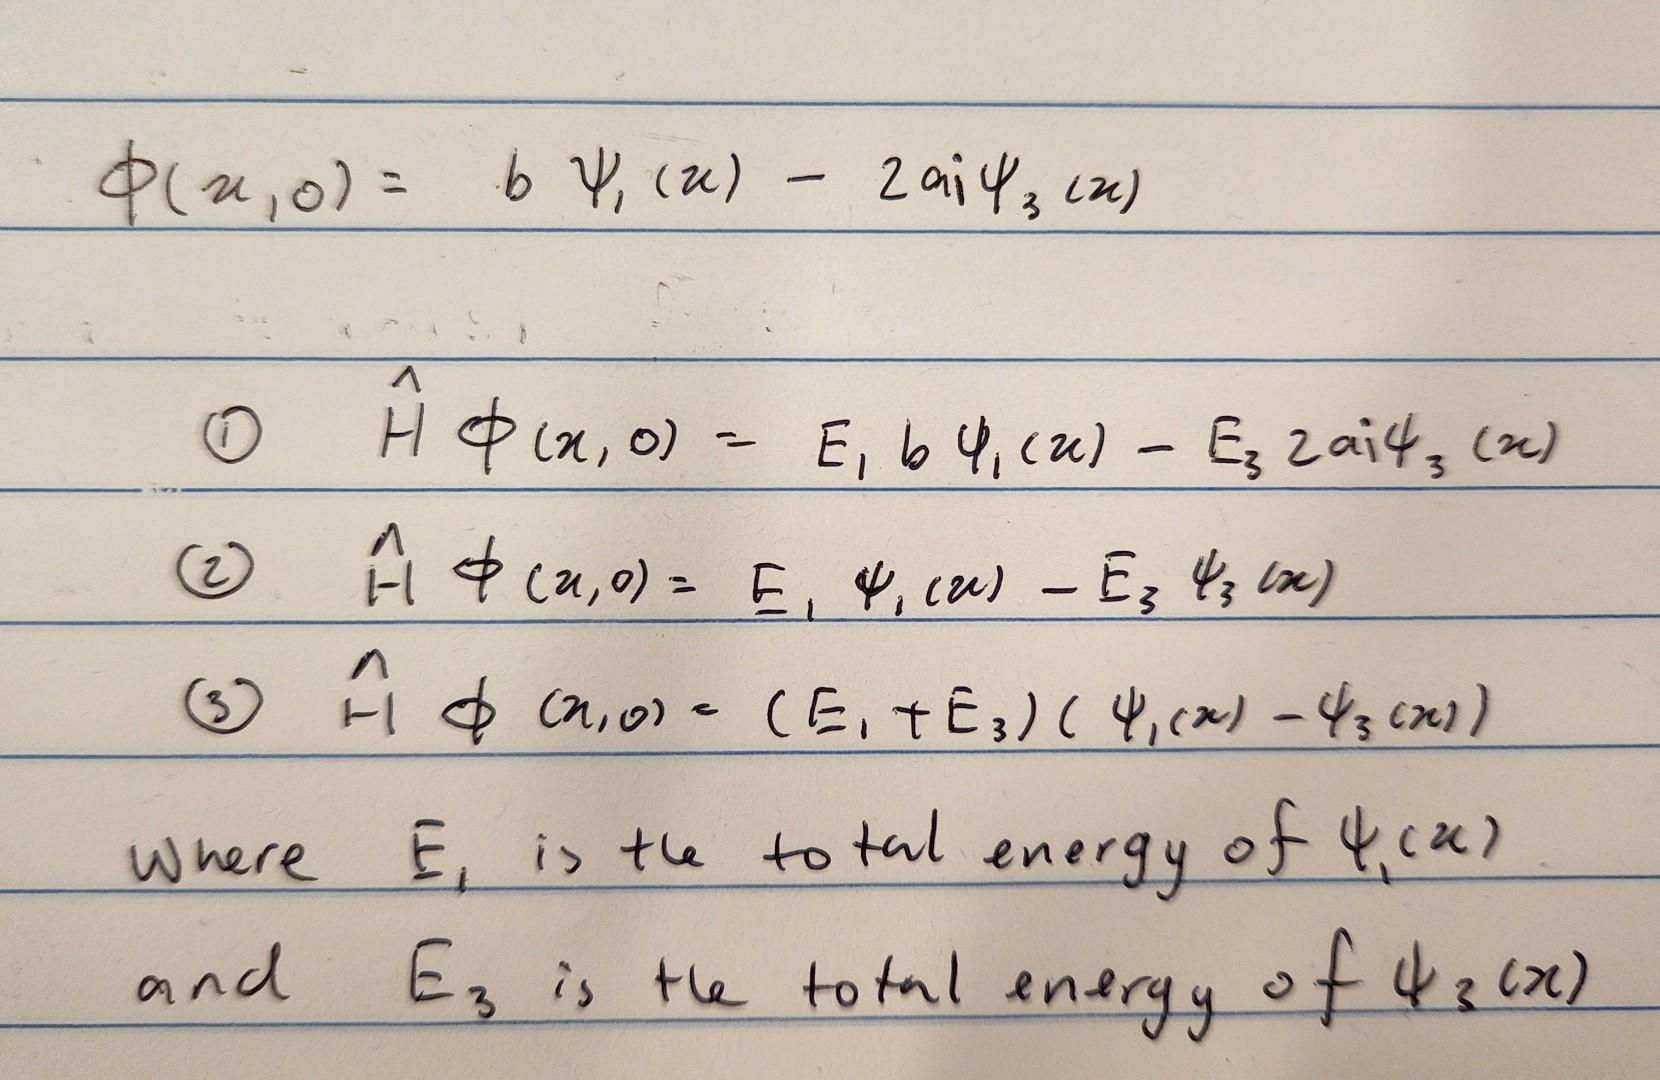 ϕ(x,0) = b ψ₁(x) - 2aiψ₃(x)
① Ĥ ϕ(x,0) = E₁ b ψ₁(x) - E₃ 2aiψ₃(x)
② Ĥ ϕ(x,0) = E₁ ψ₁(x) - E₃ ψ₃(x)
③ Ĥ ϕ(x,0) = (E₁ + E₃)(ψ₁(x) - ψ₃(x))
where E₁ is the total energy of ψ₁(x)
and E₃ is the total energy of ψ₃(x)